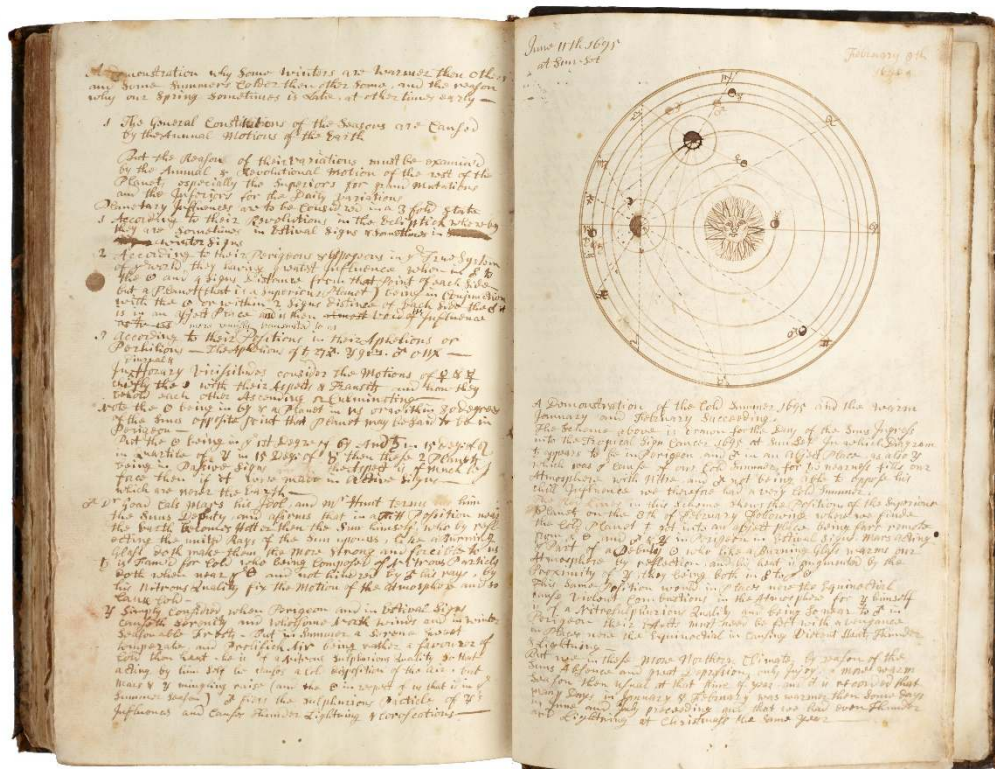 A Demonstration why Some Winters are Warmer then Other
and Some Summers Colder then other Some, and the reason
why our Spring Sometimes is Late, at other times early
1 The General Constitutions of the Seasons are Caused
by the Annual Motions of the Earth
But the Reason of their Variations must be examined
by the Annual & Revolutional Motion of the rest of the
Planets, especially the Superiors for grand Mutations
and the Inferiors for the Daily variation
Planetary Influences are to be Considered in a 3 fold State
1 According to their Revolutions in the Ecliptick whereby
they are Sometimes in Estival Signs & sometimes in
winter Signs
2 According to their Perigeons & Apogeons in ye True System
of ye world they having greatest Influence when in ☍ to
the ☉ and 4 Signs distance from that Point of each Side
but a Planet (that is a Superiour Planet) being in Conjunction
with the ☉ or within 2 Signs distance of each side the
is in an abject Place and then almost void of Influence
3 According to their Positions in their Aphelions or
Perihelions — The Aphelion of
consider the Motions of ♀ & ☿
with their Aspects & Transits and how they
behold each other Ascending or Culminating
Note the ☉ being in a Planet in or within 30 degrees
of the Suns opposite point that Planet may be Said to be in
Perigeon
But the ☉ being in ye 1st Degree of ♋ and ♄ in 15 Deg: of
in Quartile of in 15 Deg: of then these 2 Planets
being in Passive Signs the Aspect is of much less
force then if it were made in Active Signs
which are neerer the Earth
Goad Calls Mars his and Mr Hunt terms him
the Suns Deputy, and affirms that in a Position near
the Earth becomes Hotter then the Sun himself, who by refl
ecting the united Rays of the Sun upon us, like a Burning
Glass doth make them the more Strong and forcible to us
♄ is Famed for Cold who being Composed of Nitrous Particles
doth when near ye ☉ and not hindered by ♂ his rays, by
his Nitrous Quality fix the Motion of the Atmosphere and so
Cause Cold
♃ Simply Considered when Perigeon and in Estival Signs
Causeth Serenity and wholsome North winds and in winter
Seasonable Frosts — But in Summer a Serene Sweet
temperate, and Pacifick Air being rather a favourer of
Cold then heat. he is of a Nitrous Sulphurious Quality So that
acting by him Self he causes a Cold disposition of the Air, but
Mars & ♃ mingling raies (and the ☉ in respect of us that is in ye
Summer Season) ♂ fires the Sulphurious Particle of ♃
Influences and Causes thunder Lightning & Coruscations
June 11th 1695
at Sun-Set
February 8th
A Demonstration of the Cold Summer 1695 and the warm
January and February Succeeding
The Scheme above is drawn for the Day of the Suns Ingress
into the Tropical Sign Cancer 1695 at Sun-Set In which Diagram
♄ appears to be in Perigeon and ♂ in an Abject Place as also ♃
which was ye Cause of our Cold Summer, for ♄ nearness fills our
Atmosphere with Nitre and ♂ not being able to oppose his
Chill Influence we therefore had a very Cold Summer
in this Scheme shew the Position of the Superiour
Planets on the of February following when we find
the Cold Planet ♄ got into an abject place being farr remote
from ye ☉ and ♂ & ♃ in Perigeon in Estival Signs. Mars acting
ye Part of a Deputy ☉ who like a Burning Glass warms our
Atmosphere by reflection and his heat is augmented by the
Proximity of ♃ they being both in ☍ to ye ☉
This Same Position would in Places near the Equinoctial
Cause Violent Conturbations in the Atmosphere for ♃ himself
is of a Nitrosulphurious Quality and being So near to ♂ in
Perigeon their Effects must need be felt with a vengance
in Places near the Equinoctial in Causing Violent Heat Thunder
& Lightning
But we in these More Northern Climates by reason of the
Suns Absence and great Depression only enjoy a more warm
Season then usual at that time of year and it is recorded that
many Days in January & February was warmer then Some Days
in June and July preceeding and that we had even Thunder
and Lightning at Christmass the Same Year